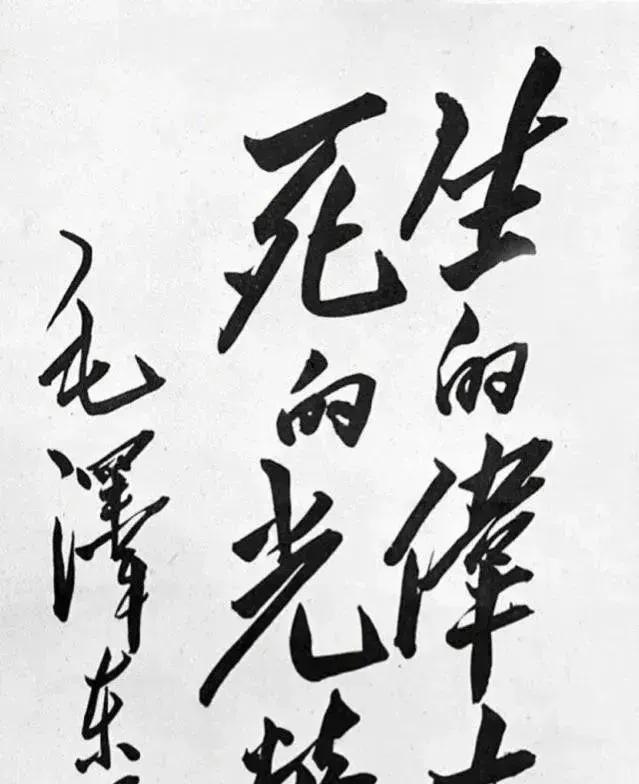 生的偉大
死的光荣
毛澤东